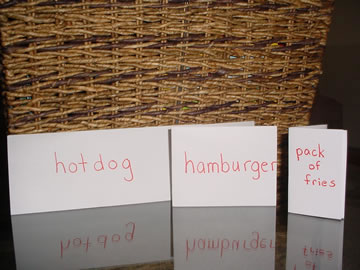 hotdog
hamburger
pack
of
fries